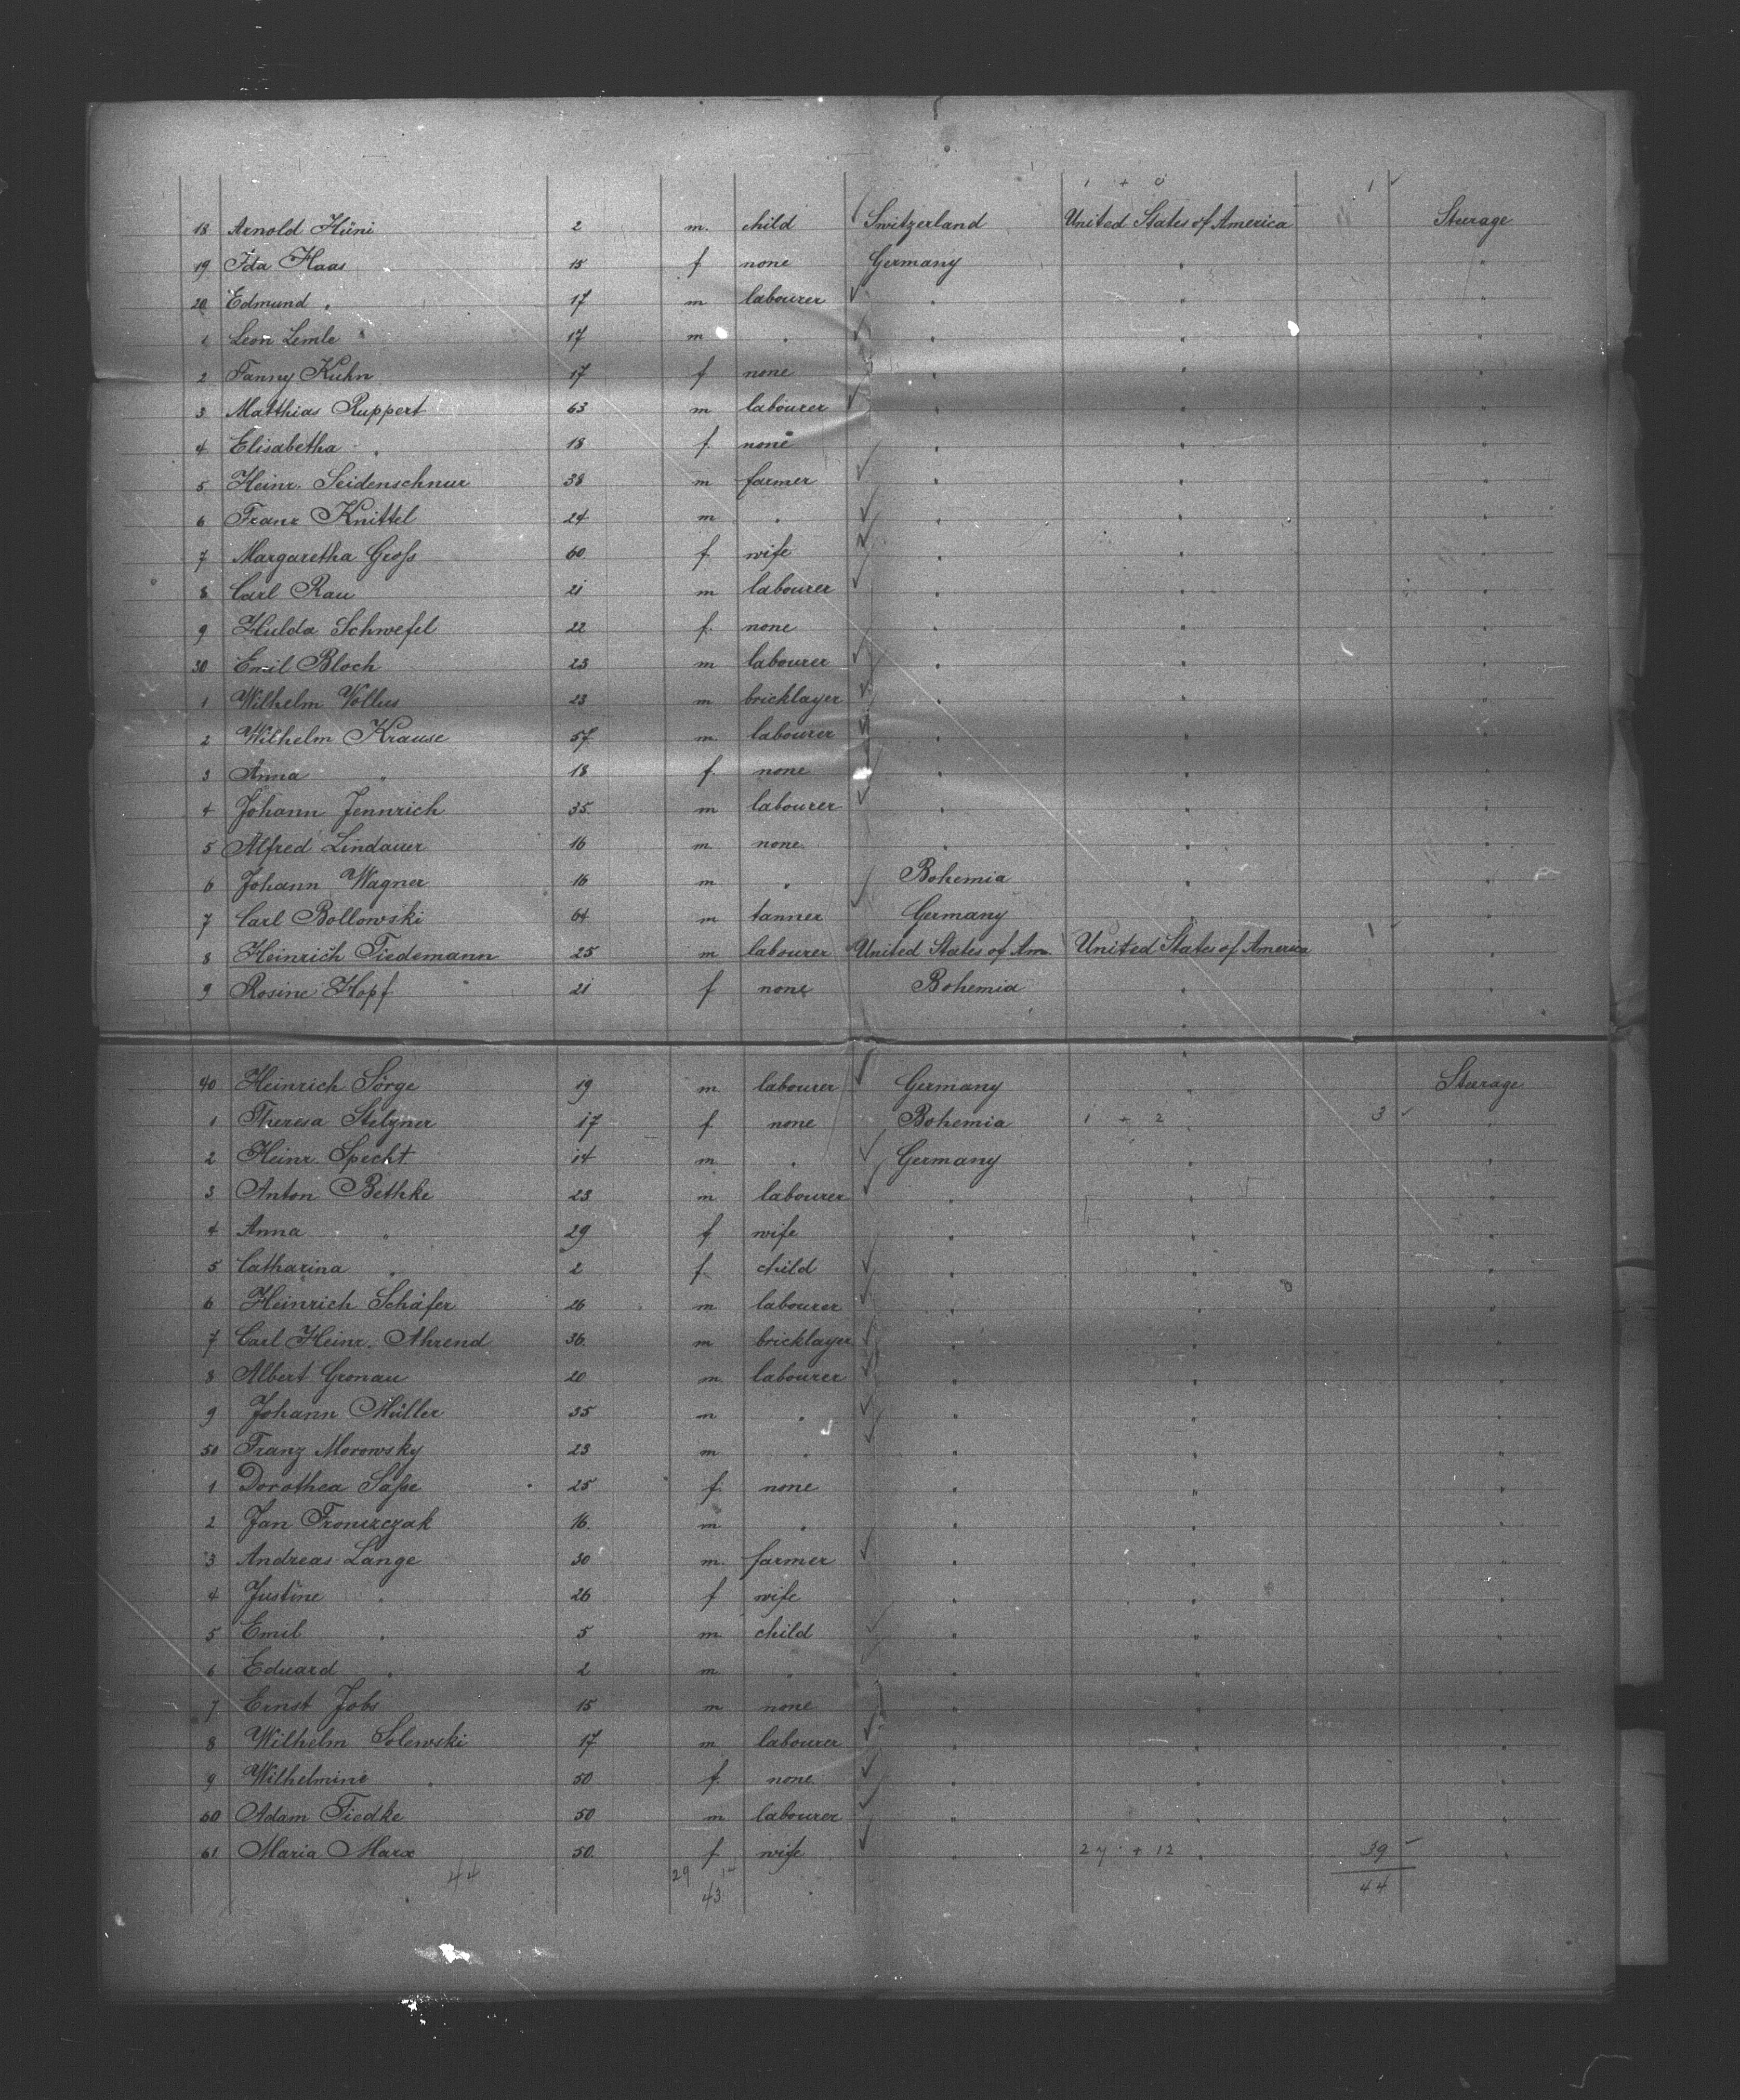 1 + 0 1 ✓
18 Arnold Hüni 2 m. child Switzerland United States of America Sturage
19 Ida Haas 15 f none Germany " "
20 Edmund " 17 m labourer ✓ " " "
1 Leon Lemle 17 m " ✓ " " "
2 Fanny Kuhn 17 f none " " "
3 Matthias Ruppert 63 m labourer ✓ " " "
4 Elisabetha " 18 f. none " " "
5 Heinr. Seidenschnur 38 m farmer ✓ " " "
6 Franz Knittel 24 m " ✓ " " "
7 Margaretha Groſs 60 f. wife ✓ " " "
8 Carl Rau 21 m labourer ✓ " " "
9 Hulda Schwefel 22 f. none " " "
30 Emil Bloch 23 m labourer ✓ " " "
1 Wilhelm Vollus 23 m bricklayer ✓ " " "
2 Wilhelm Krause 57 m labourer ✓ " " "
3 Anna " 18 f. none " " "
4 Johann Jennrich 35. m labourer ✓ " " "
5 Alfred Lindauer 16 m none " " "
6 Johann Wagner 16 m " Bohemia " "
7 Carl Bollowski 64 m tanner ✓ Germany " "
8 Heinrich Tiedemann 25 m labourer United States of Am. United States of America 1 ✓ "
9 Rosine Hopf 21 f none Bohemia " "
40 Heinrich Sörge 19 m labourer ✓ Germany " Sturage
1 Theresa Stelzner 17 f. none Bohemia 1 + 2 " 3 ✓ "
2 Heinr. Specht 14 m " ✓ Germany " "
3 Anton Bethke 23 m labourer ✓ " " "
4 Anna " 29 f wife " " "
5 Catharina " 2 f. child ✓ " " "
6 Heinrich Schäfer 26 m labourer ✓ " " "
7 Carl Heinr. Ahrend 36. m bricklayer ✓ " " "
8 Albert Gronau 20 m labourer ✓ " " "
9 Johann Müller 35 m " ✓ " " "
50 Franz Morowsky 23 m " ✓ " " "
1 Dorothea Saſse 25 f. none " " "
2 Jan Fronszczak 16. m " " " "
3 Andreas Lange 30 m. farmer ✓ " " "
4 Justine " 26 f wife " " "
5 Emil " 5 m child ✓ " " "
6 Eduard " 2 m " " " "
7 Ernst Jobs 15 m none " " "
8 Wilhelm Solewski 17 m labourer ✓ " " "
9 Wilhelmine " 50 f. none ✓ " " "
60 Adam Tiedke 50 m labourer ✓ " " "
61 Maria Marx 50. f wife ✓ " 27 + 12 " 39 "
44 29 14 44
43